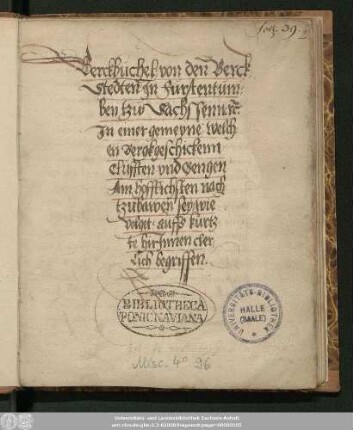 Berckbuchel von den Berck
Stedten In Furstentum:
ben tzw Sachssenn rc.
In einer gemeyne welch
en Bergkgeschickenn
Clufften vnd Gengen
Am hofflichsten nach
tzubawen sey wie
volgt auffs kurtz
te hirInnen cler
lich begriffen.
BIBLIOTHECA
PONICKAVIANA
UNIVERSITÄTS-BIBLIOTHEK
HALLE
(SAALE)
Misc. 4° 96
Universitäts- und Landesbibliothek Sachsen-Anhalt